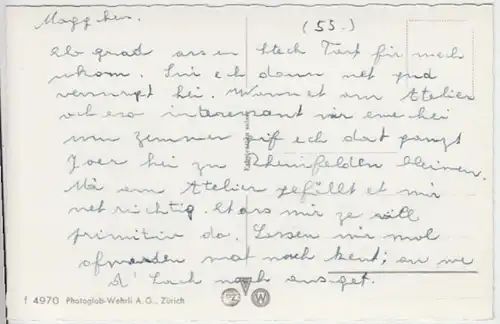 Moggchen.
(55.)
Eb grad as en Stech Tart fir mech
ukom. Sin ech dann net gud
vernunft hei. Wann et am Atelier
och eso interessant wir eme hei
um Zemmer gif ech dat ganzt
Joer hei zu Rheinfelden bleiwen.
Mä am Atelier gefällt et mir
net richtig. Et ass mir ze vill
primitiv do. Lossen mir mol
ofwaarden wat nach kennt; an wei
d' Sach nach ausget.
f 4970 Photoglob-Wehrli A.G., Zürich